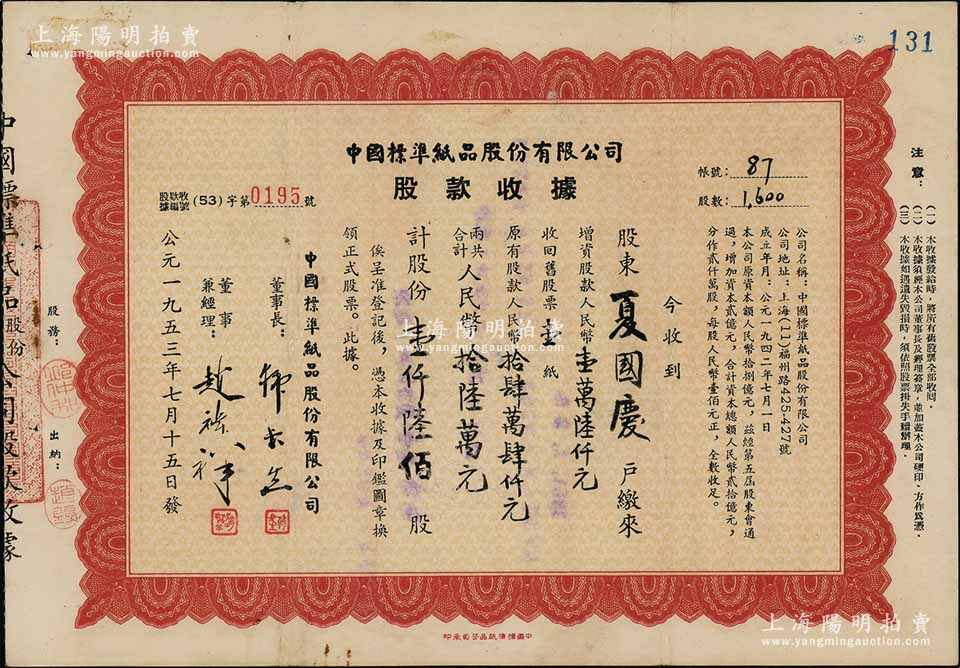 上海陽明拍賣
www.yangmingauction.com
131
中國標準紙品股份有限公司
股款收據
股款收據編號 (53) 字第 0195 號
帳號： 87
股數： 1,600
注意：
(一) 本收據發給時，將所有舊股票全部收回。
(二) 本收據須經本公司董事長及經理簽章，並加蓋本公司硬印，方作為憑。
(三) 本收據如遇遺失毀損時，須依照股票掛失手續辦理。
公司名稱：中國標準紙品股份有限公司
公司地址：上海(11)福州路425-427號
成立年月：公元一九四二年七月一日
本公司原資本人民幣拾捌億元，茲經第五屆股東會通
過，增加資本貳億元，合計資本總額人民幣貳拾億元，
分作貳仟萬股，每股人民幣壹佰元正，全數收足。
今收到
股東 夏國慶 戶繳來
增資股款人民幣壹萬陸仟元
收回舊股票壹紙
原有股款人民幣拾肆萬肆仟元
兩共合計人民幣拾陸萬元
計股份 壹仟陸佰 股
俟呈准登記後，憑本收據及印鑑圖章換
領正式股票。此據。
中國標準紙品股份有限公司
董事長：
董事兼經理：
公元一九五三年七月十五日發
股務：
出納：
中國標準紙品股份公司股款收據
中國標準紙品公司承印
上海陽明拍賣
www.yangmingauction.com